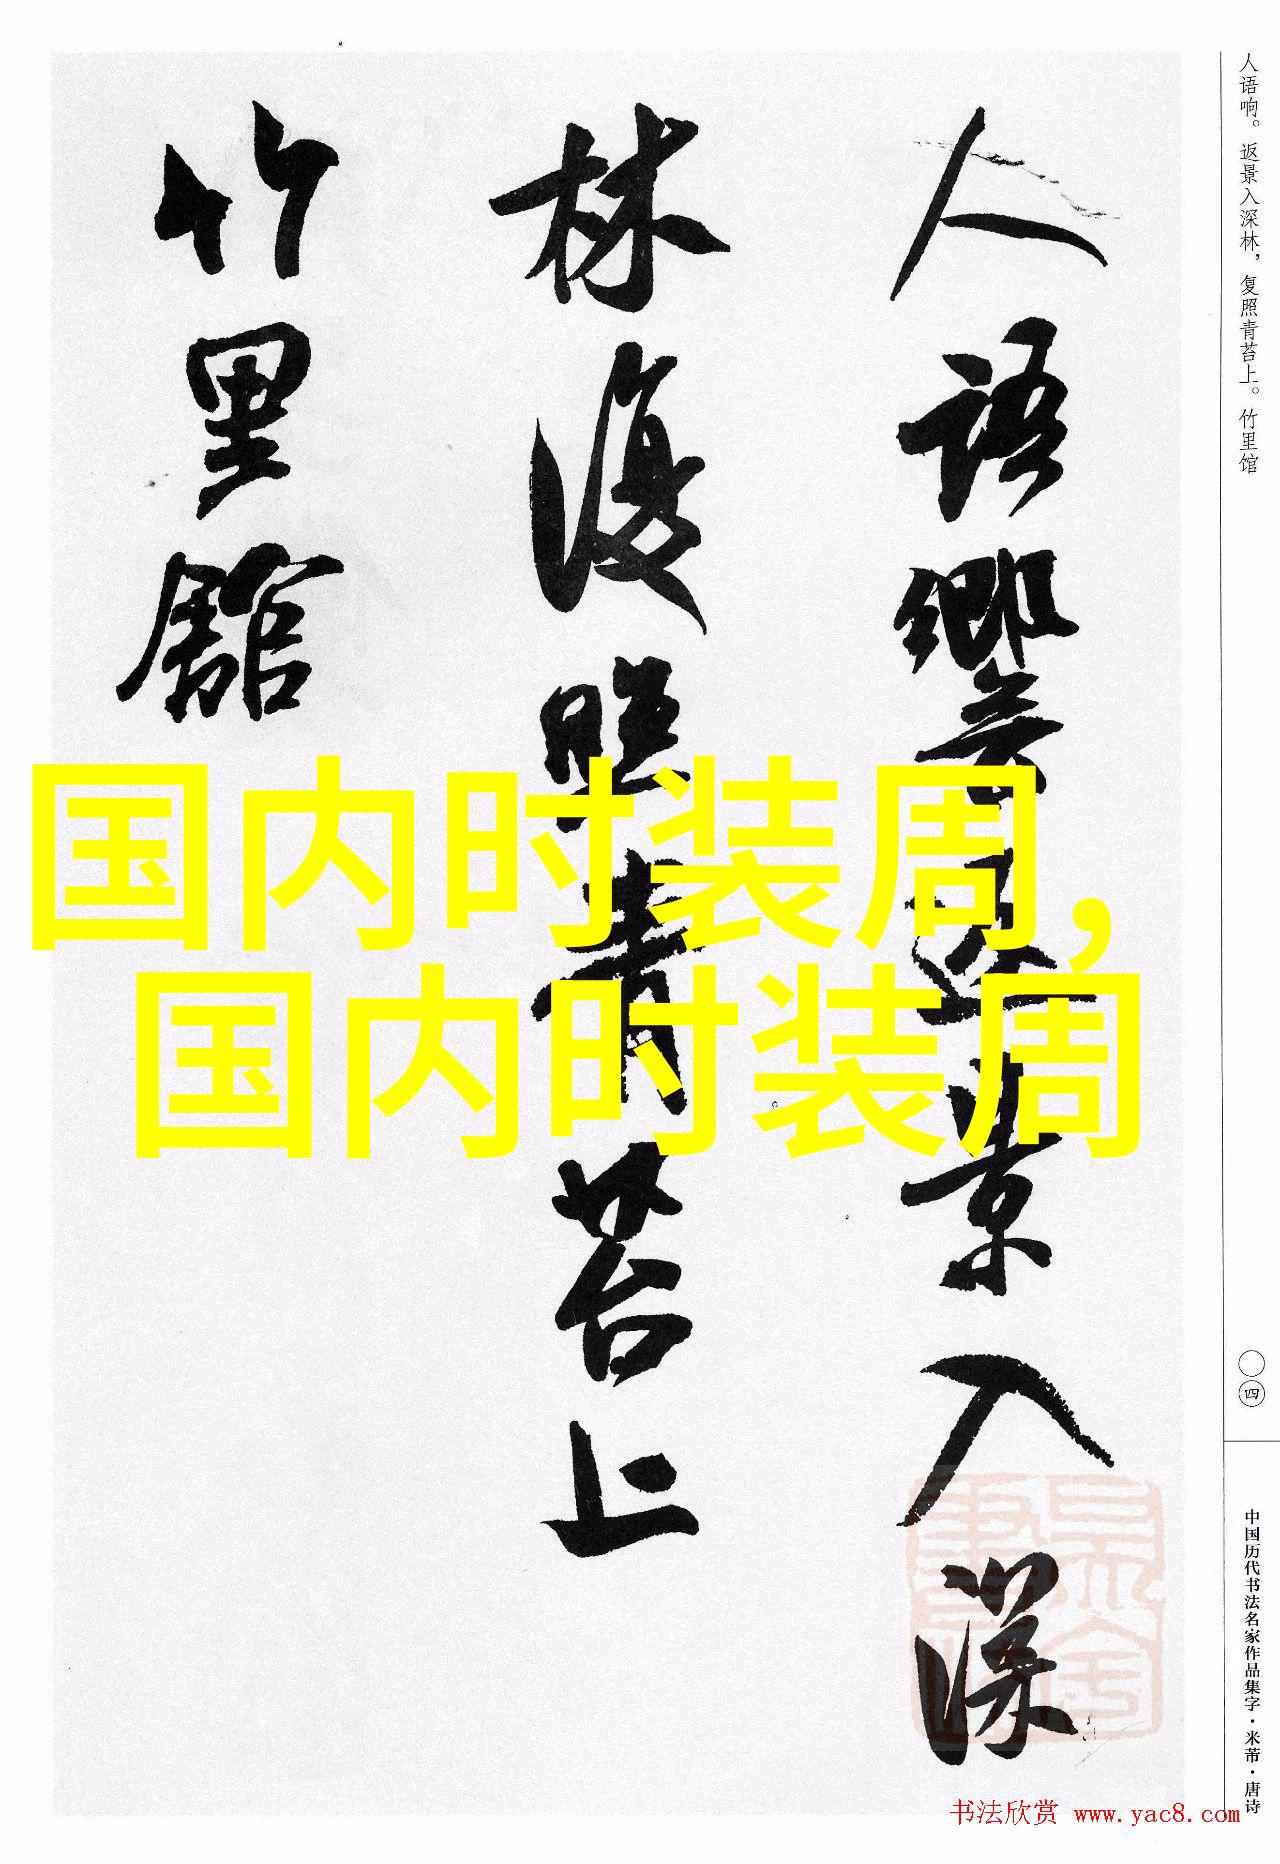 人语响。返景入深林，复照青苔上。竹里馆
人語響返景入深
林復照青苔上
竹里館
国内时装周，
国内时装周
〇四
中国历代书法名家作品集字·米芾·唐诗
书法欣赏 www.yac8.com